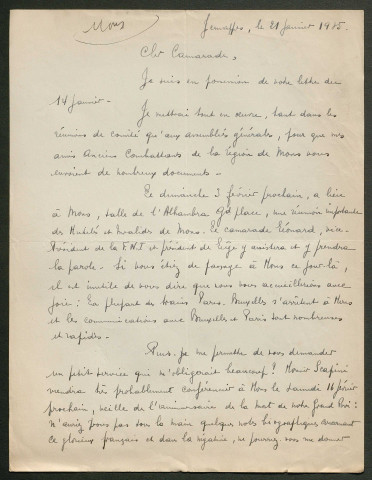 Mons
Jemappes, le 21 Janvier 1935.
Cher Camarade,
Je suis en possession de votre lettre du
14 janvier -
Je mettrai tout en œuvre, tant dans les
réunions de comité qu'aux assemblées générales, pour que nos
amis Anciens Combattants de la région de Mons vous
envoient de nombreux documents -
Le dimanche 3 février prochain, a lieu
à Mons, salle de l'Alhambra Gd place, une réunion importante
des Mutilés et Invalides de Mons. Le camarade Léonard, vice-
Président de la F.N.I et président de Liège y assistera et y prendra
la parole. Si vous étiez de passage à Mons ce jour-là,
il est inutile de vous dire que nous vous accueillerions avec
joie : La plupart des trains Paris-Bruxelles s'arrêtent à Mons
et les communications avec Bruxelles et Paris sont nombreuses
et rapides -
Puis-je me permettre de vous demander
un petit service qui m'obligerait beaucoup ? Monsieur Scapini
viendra très probablement conférencier à Mons le samedi 16 février
prochain, veille de l'anniversaire de la mort de notre Grand Roi :
n'auriez-vous pas sous la main quelques notes biographiques concernant
ce glorieux français et dans la négative, ne pourriez-vous me donner